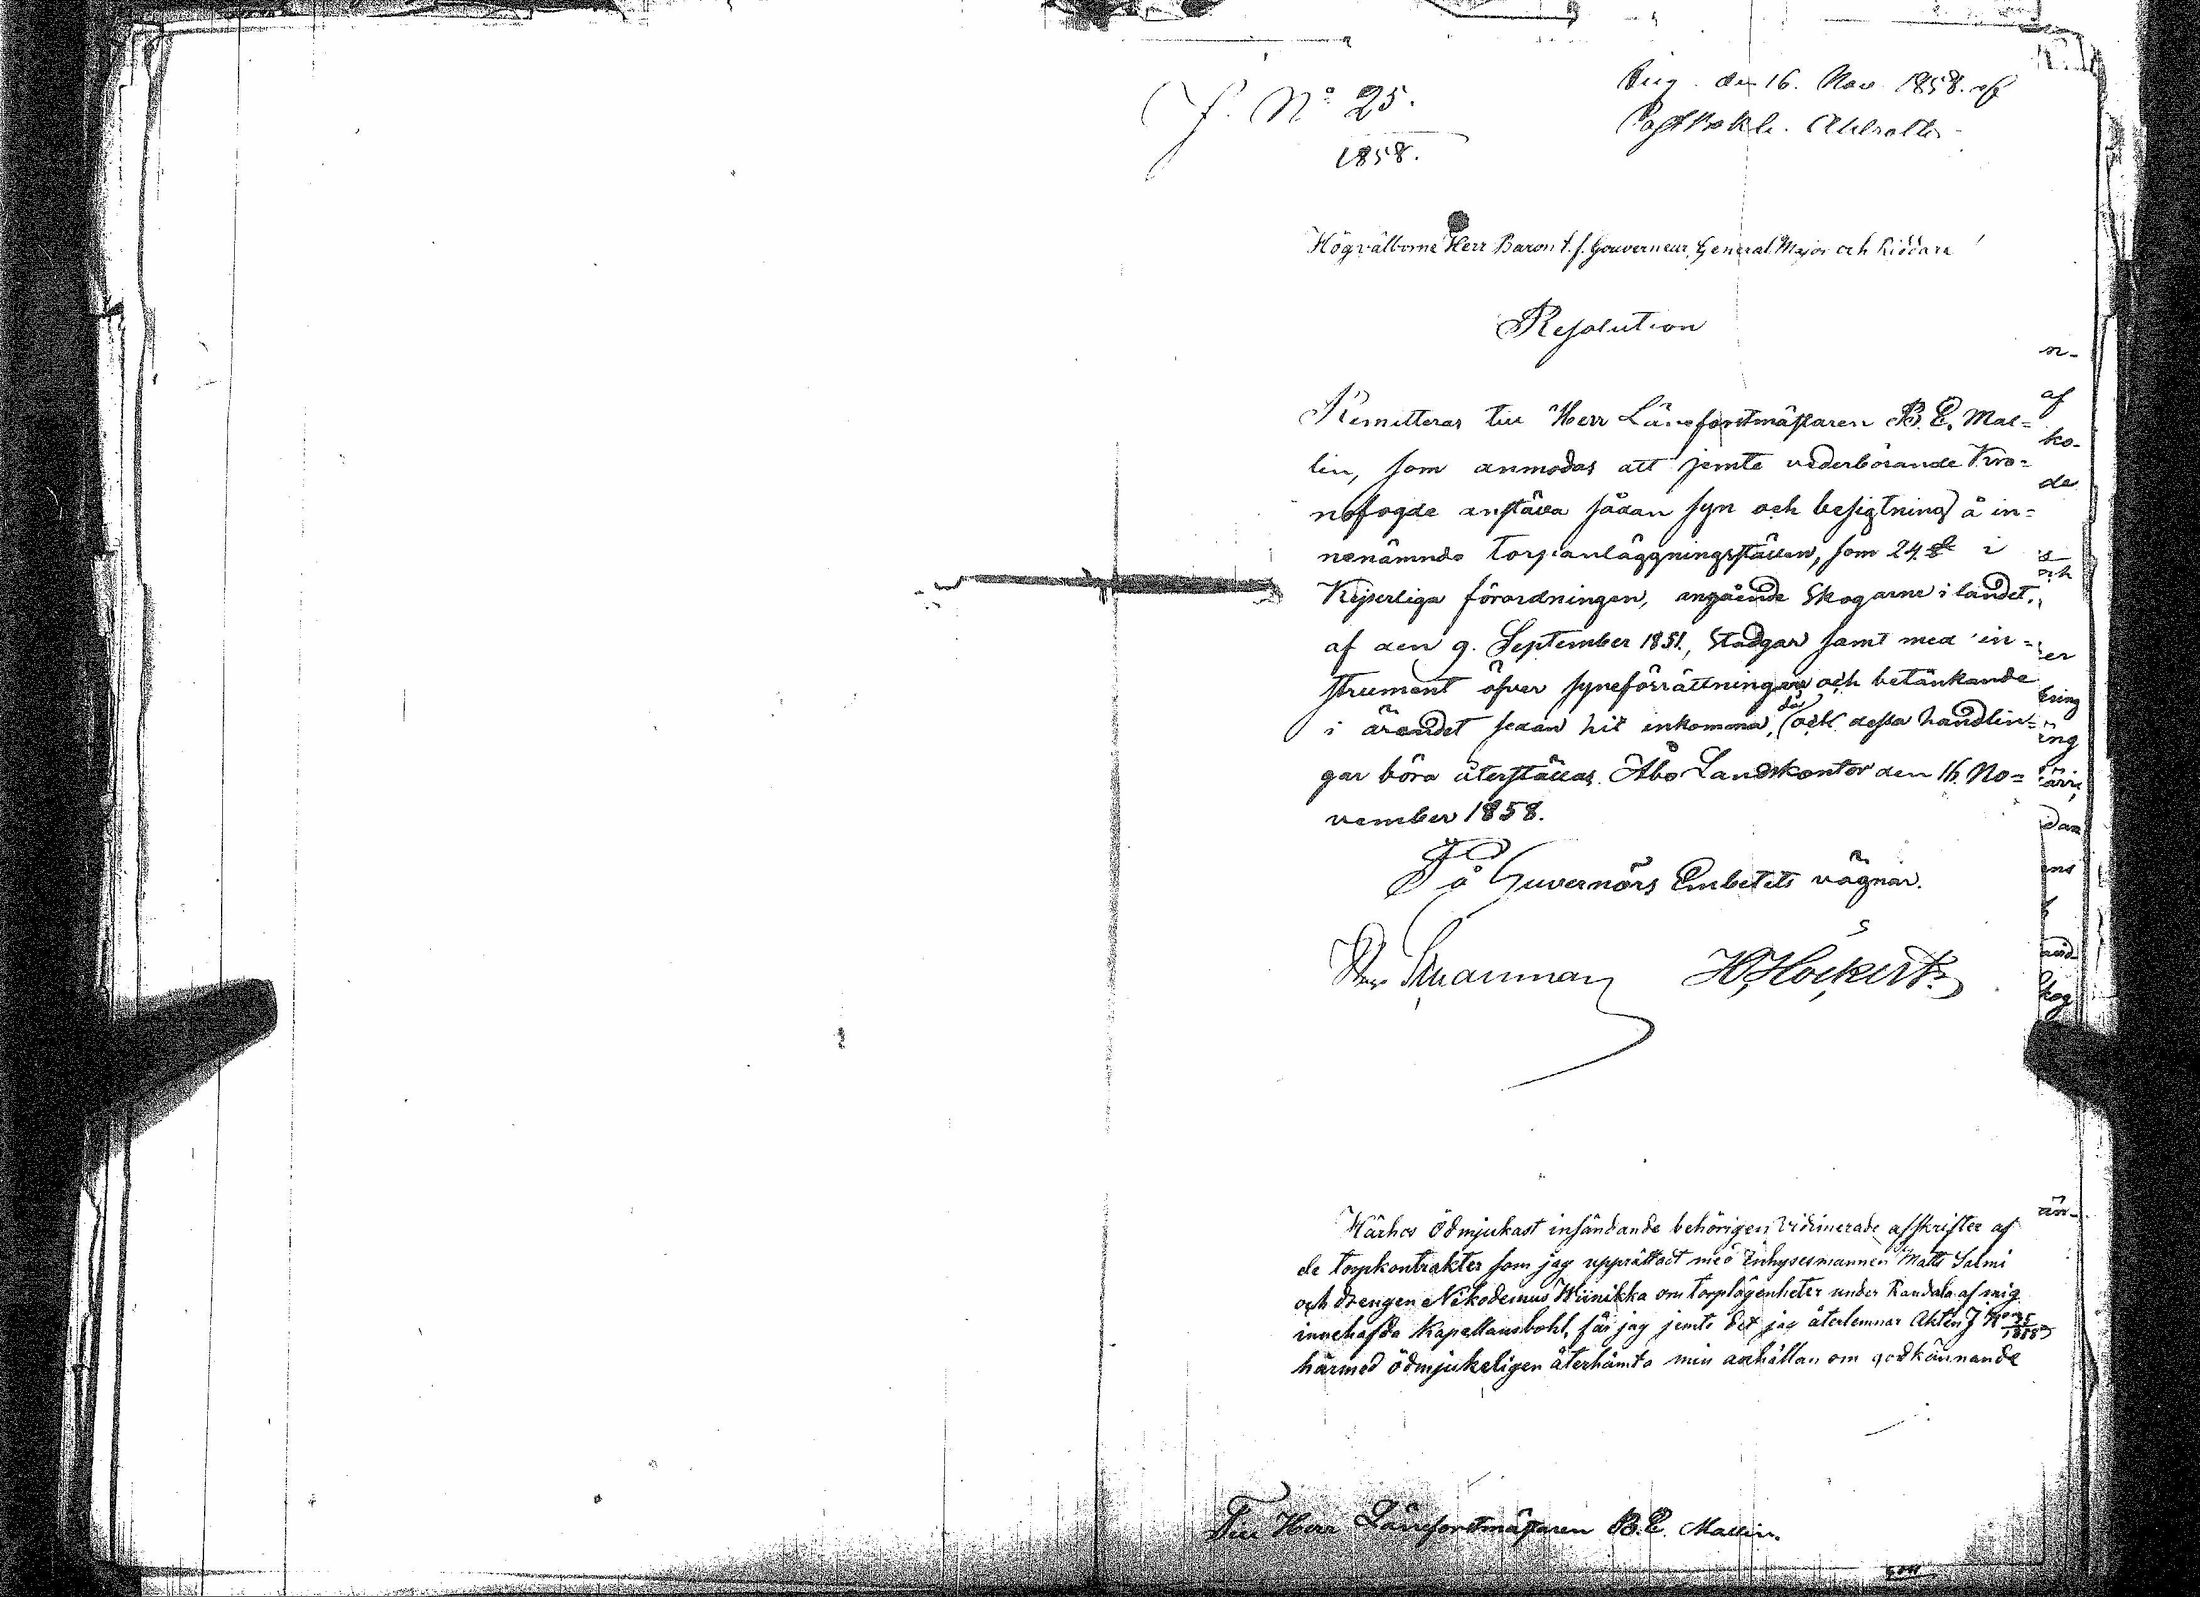 J. No 25.
1858.
Ing. den 16. Nov. 1858. af
Högvälborne Herr Baron t. f. Gouverneur, General Major och Riddare!
Resolution
Remitteras till Herr Länsforstmästaren B. E. Mal=
lin, som anmodas att jemte vederbörande Kro=
nofogde anställa sådan syn och besigtning å in=
nenämnde torpanläggningsställen, som 24 § i
Kejserliga förordningen, angående Skogarne i landet,
af den 9. September 1851, stadgar samt med in=
strument öfver syneförrättningen och betänkande
i ärendet sedan hit inkomma, då och dessa handlin=
gar böra återställas. Åbo Landskontor den 16. No=
vember 1858.
På Guvernörs Embetets vägnar.
H. Höckert
Härhos ödmjukast insändande behörigen vidimerade afskrifter af
de torpkontrakter som jag upprättadt med Inhysesmannen Matts Salmi
och drengen Nikodemus Wiinikka om torplägenheter under Raudala af mig
innehafda Kapellansbohl, får jag jemte det jag återlemnar Akten J. No 25/1858
härmed ödmjukeligen återhämta min anhållan om godkännande
Till Herr Länsforstmästaren B. E. Mallin.